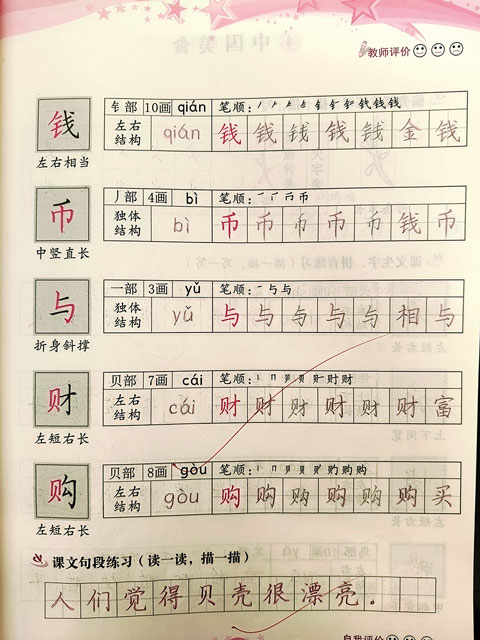 教师评价
钱 钅部 10画 qián 笔顺: 钱
左右结构 qián 钱 钱 钱 钱 钱 金 钱
左右相当
币 丿部 4画 bì 笔顺: 币
独体结构 bì 币 币 币 币 币 钱 币
中竖直长
与 一部 3画 yǔ 笔顺: 一与与
独体结构 yǔ 与 与 与 与 与 相 与
折身斜撑
财 贝部 7画 cái 笔顺: 财
左右结构 cái 财 财 财 财 财 财 富
左短右长
购 贝部 8画 gòu 笔顺: 购
左右结构 gòu 购 购 购 购 购 购 买
左短右长
课文句段练习(读一读,描一描)
人们觉得贝壳很漂亮。
自我评价